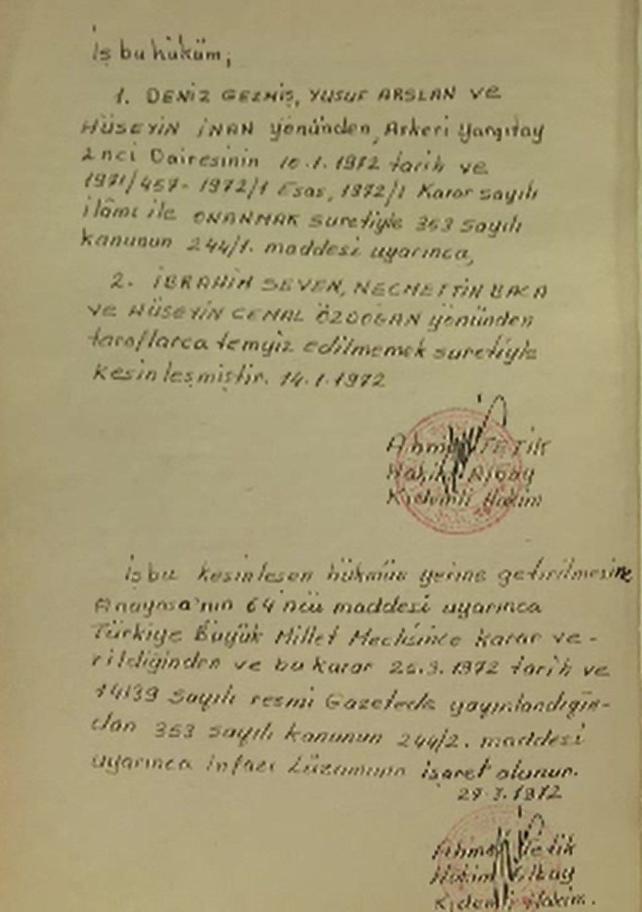 İşbu hüküm;
1. DENİZ GEZMİŞ, YUSUF ARSLAN ve
HÜSEYİN İNAN yönünden, Askeri Yargıtay
2 nci Dairesinin 10.1.1972 tarih ve
1971/457-1972/1 Esas, 1972/1 Karar sayılı
ilâmı ile ONANMAK suretiyle 353 sayılı
kanunun 244/1. maddesi uyarınca,
2. İBRAHİM SEVEN, NECMETTİN BACA
ve HÜSEYİN CEMAL ÖZDOĞAN yönünden
taraflarca temyiz edilmemek suretiyle
kesinleşmiştir. 14.1.1972
Ahmet TETİK
Hakim Albay
Kıdemli Hakim
İşbu kesinleşen hükmün yerine getirilmesine
Anayasa'nın 64 ncü maddesi uyarınca
Türkiye Büyük Millet Meclisince karar ve-
rildiğinden ve bu karar 25.3.1972 tarih ve
14139 sayılı resmi Gazetede yayınlandığın-
dan 353 sayılı kanunun 244/2. maddesi
uyarınca infazı lüzumuna işaret olunur.
27.3.1972
Ahmet Tetik
Hakim Albay
Kıdemli Hakim.